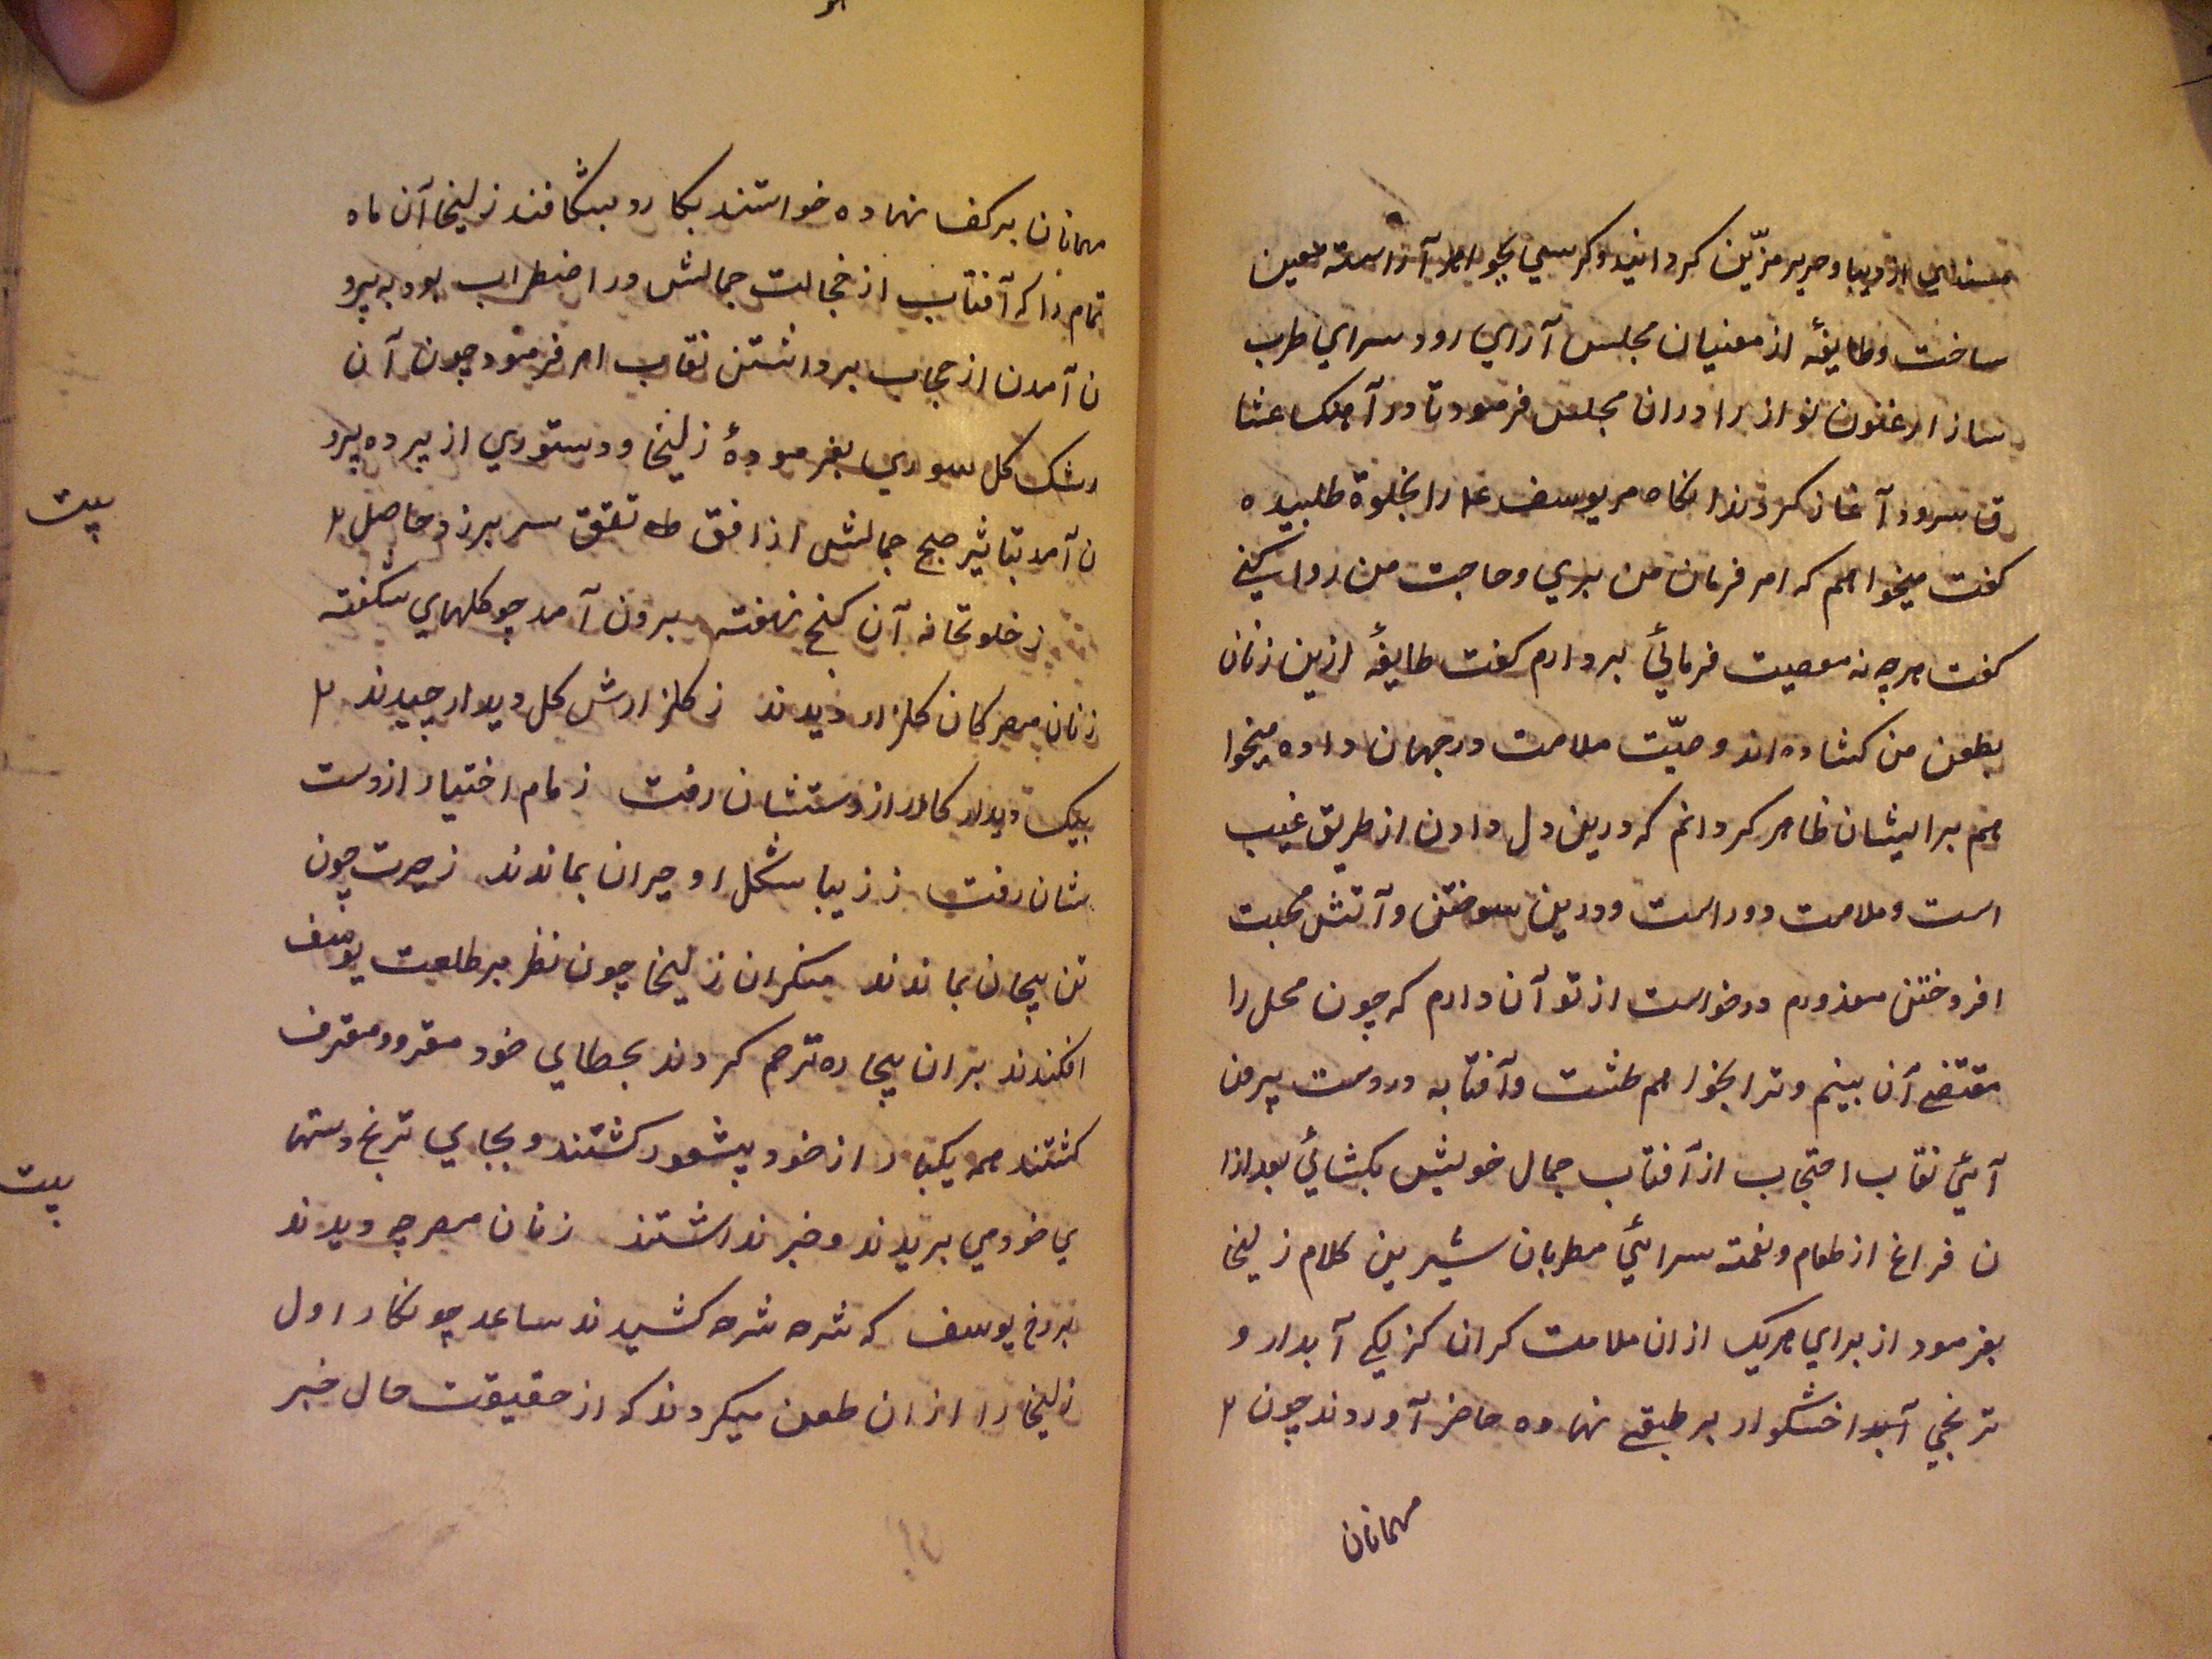 مسندي از ديبا و حرير مزيّن كردانيد و كرسي بجواهر آراسته معين
ساخت و طايفهٔ از مغنيان مجلس آراي رود سراي طرب
ساز ارغنون نواز را دران مجلس فرمود تا در آهنك عشا
ق سرود آغاز كردند انكاه مر يوسف عم را بخلوة طلبيده
كفت ميخواهم كه امر فرمان من بري و حاجت من روا كني
كفت هرچه نه معصيت فرمائي بردارم كفت طايفهٔ ازين زنان
بطعن من كشاده‌اند و صيّت ملامت در جهان داده ميخوا
هم بر ايشان ظاهر كردانم كه درين دل دادن از طريق عيب
است و ملامت دور است و درين سوختن و آتش محبت
افروختن معذورم درخواست از تو آن دارم كه چون محل را
مقتضي آن بينم و ترا بخواهم طشت و آفتابه در دست بيرون
آئي نقاب احتجاب از آفتاب جمال خويش بكشائي بعد ازا
ن فراغ از طعام و نغمته سرائي مطربان شيرين كلام زليخا
بفرمود از براي هريك ازان ملامت كران كزليكي آبدار و
ترنجي آبدا خشكوار بر طبقي نهاده حاضر آوردند چون ۲
مهمانان
مهمانان بر كف نهاده خواستند بكارد بشكافند زليخا آن ماه
تمام را كه آفتاب از خجالت جمالش در اضطراب بود به بيرو
ن آمدن از حجاب برداشتن نقاب امر فرمود چون آن
رشك كل سوري بفرمودهٔ زليخا و دستوري از پرده بيرو
ن آمد تباثير صبح جمالش از افق تفقق سر برزد حاصل ۲
بيت
ز خلوتخانه آن كنج نهفته برون آمد چو كلهاي شكفته
زنان مصر كان كلزار ديدند ز كلزارش كل ديدار چيدند ۲
بيك ديدار كار از دستشان رفت زمام اختيار از دست
شان رفت ز زيبا شكل او حيران بماندند ز حيرت چون
تن بيجان بماندند منكران زليخا چون نظر بر طلعت يوسف
افكندند بران بيچاره ترحم كردند بخطاي خود مقر و معترف
كشتند همه يكبار از خود بيشعور كشتند و بجاي ترنج دستها
ي خود مي بريدند و خبر نداشتند زنان مصر چه ديدند
بيت
برخ يوسف كه شرحه شرحه كشيدند ساعد چو نكار اول
زليخا را ازان طعن ميكردند كه از حقيقت حال خبر